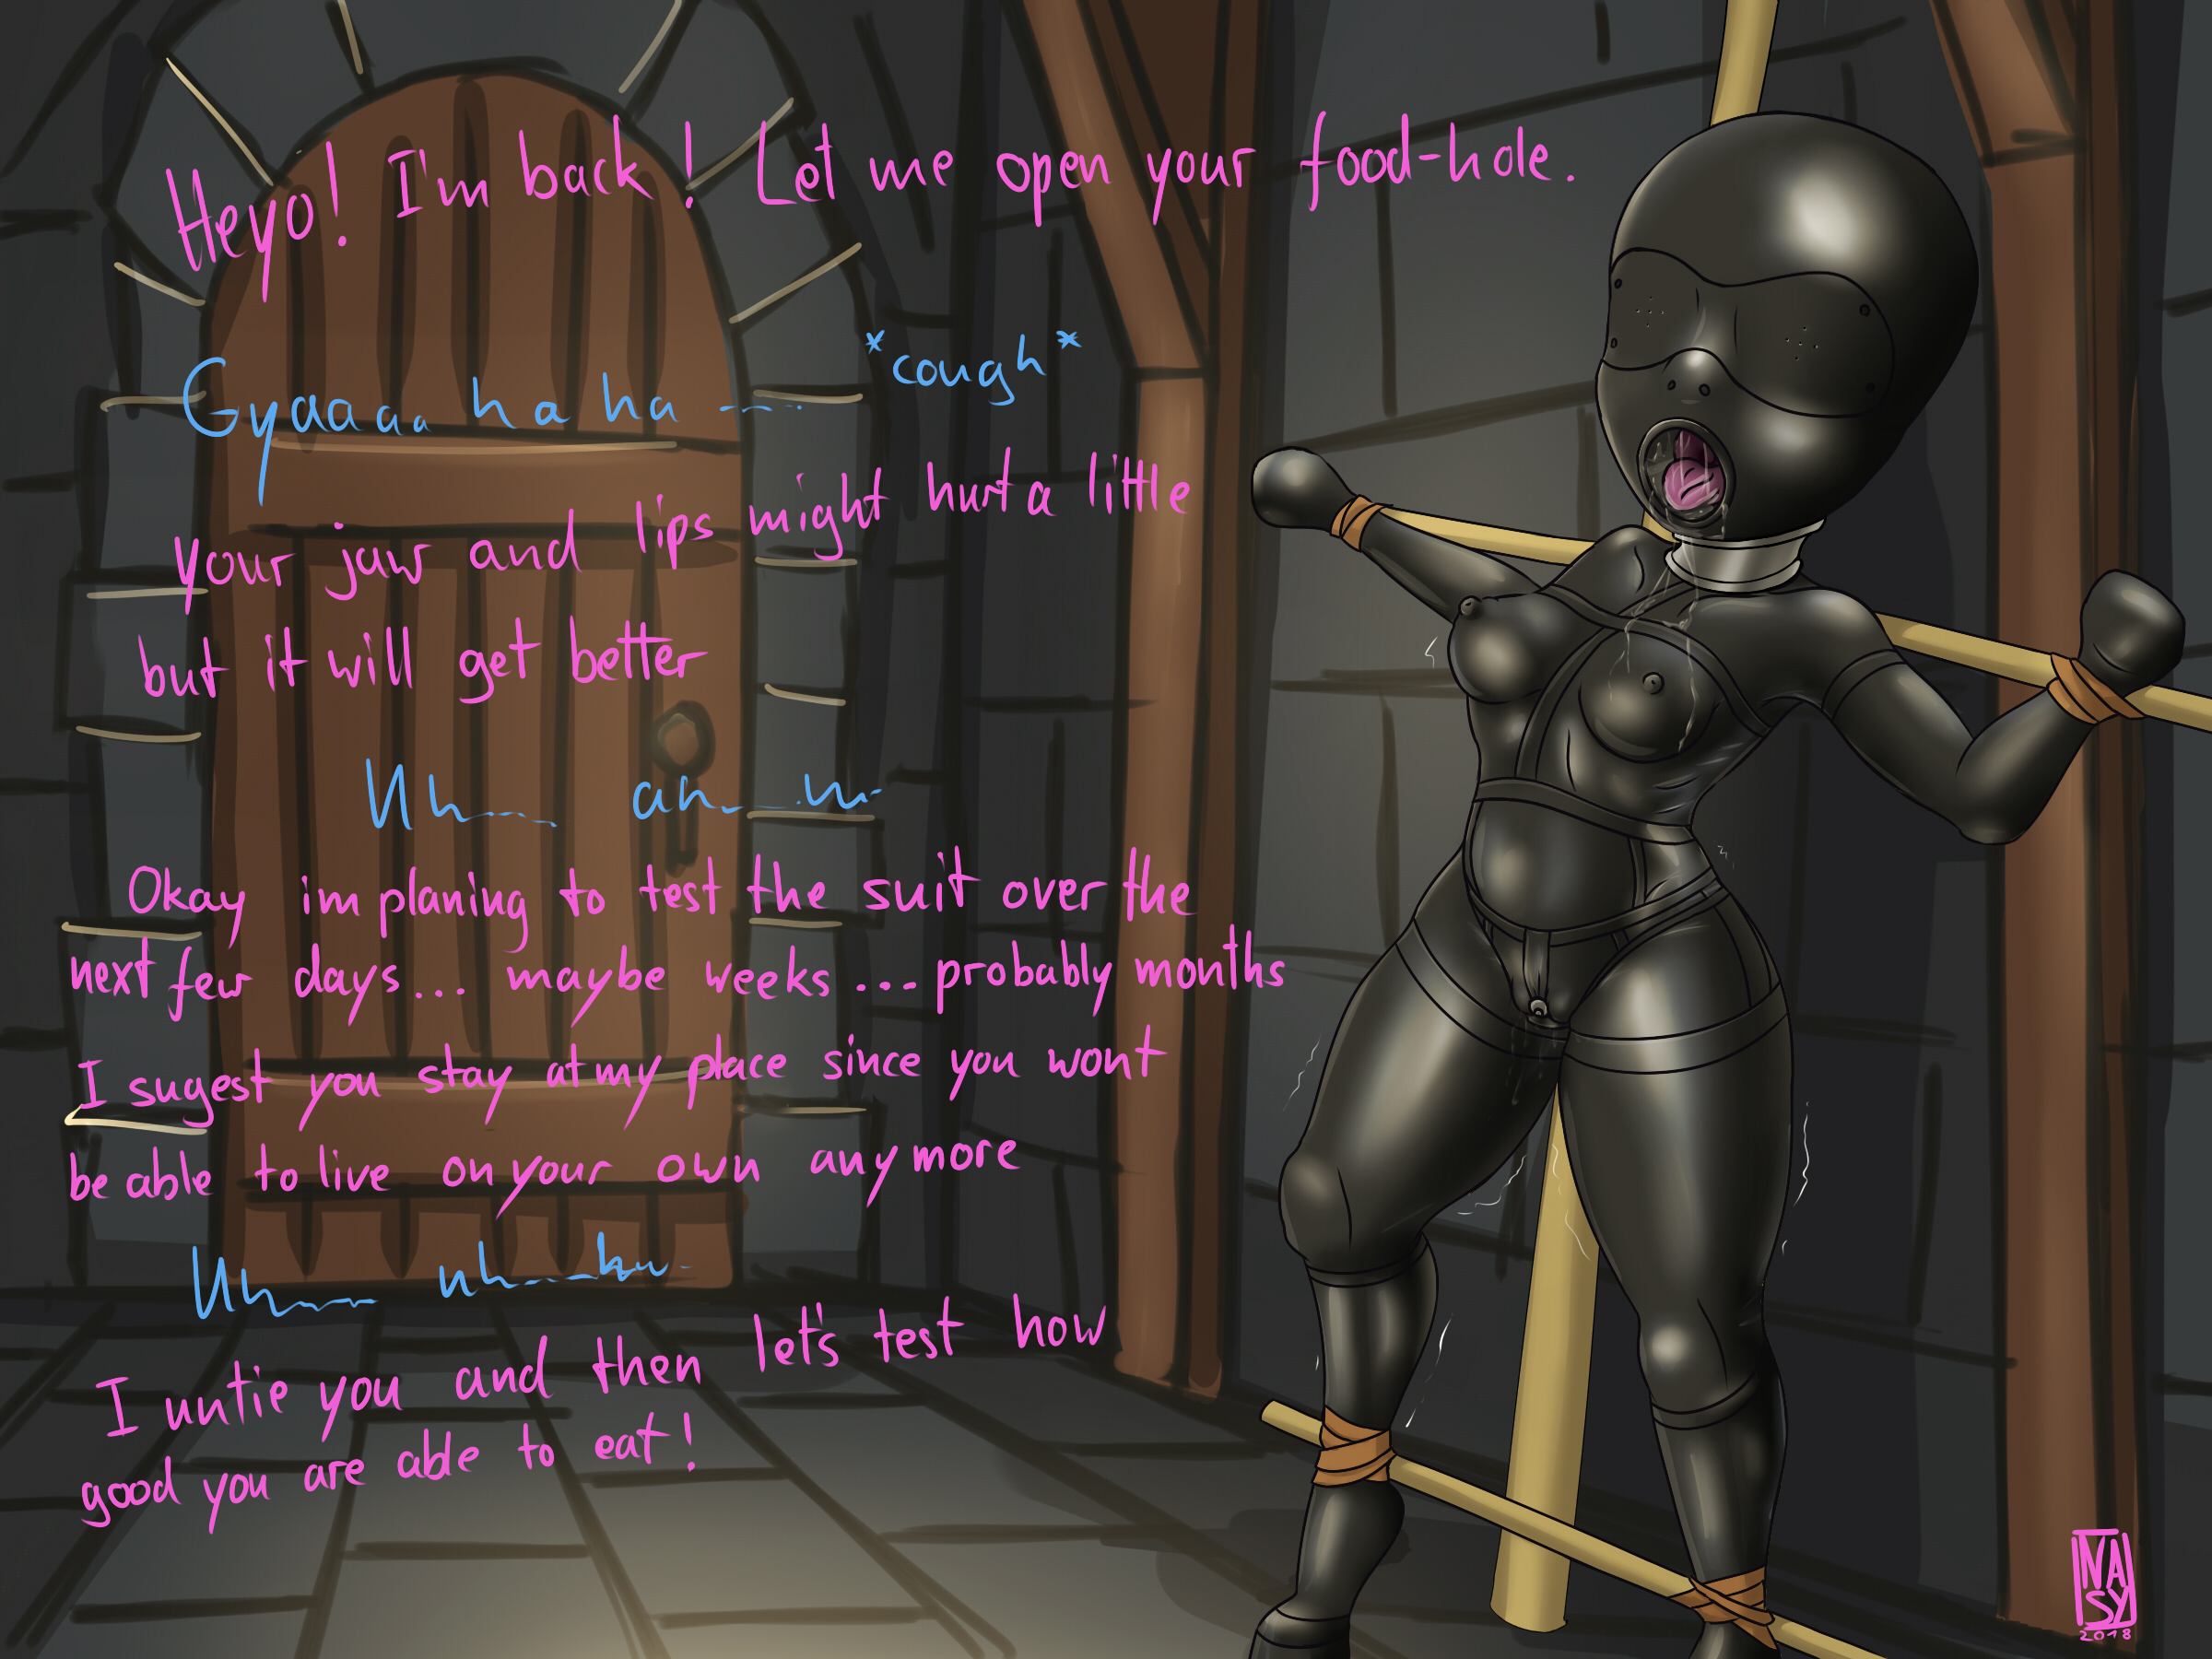 Heyo! I'm back! Let me open your food-hole.
Gyaaaa ha ha ....
*cough*
your jaw and lips might hurt a little
but it will get better
Uh.... ah......
Okay im planing to test the suit over the
next few days... maybe weeks ... probably months
I sugest you stay at my place since you wont
be able to live on your own anymore
I untie you and then let's test how
good you are able to eat!
NASY
2018